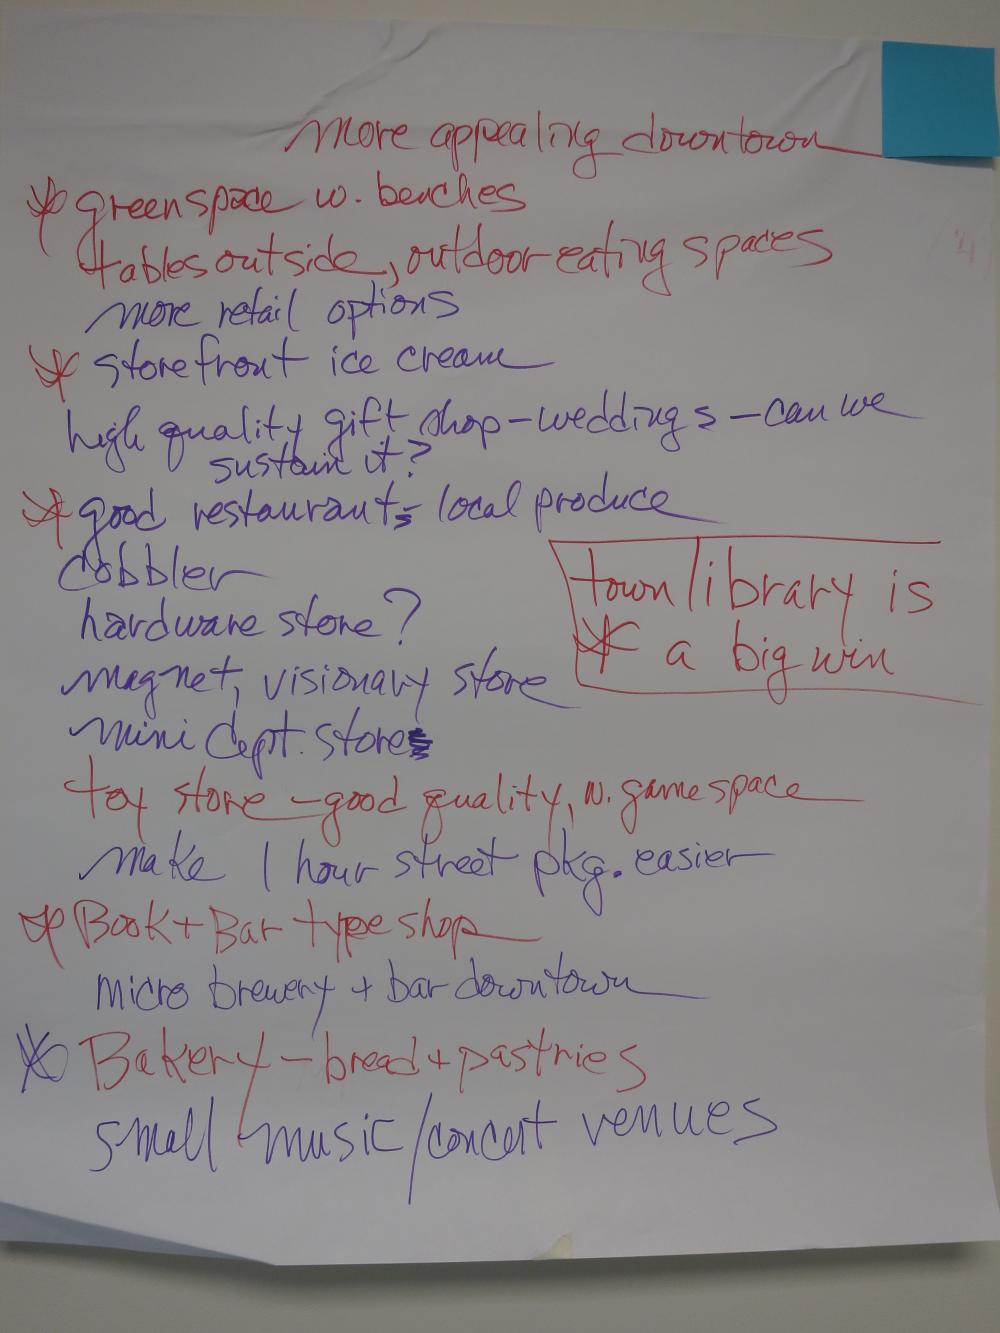 more appealing downtown
* greenspace w. benches
tables outside, outdoor eating spaces
more retail options
* storefront ice cream
high quality gift shop - weddings - can we
sustain it?
* good restaurants - local produce
cobbler
hardware store?
town library is
* a big win
magnet, visionary store
mini dept. store
toy store - good quality, w. game space
make 1 hour street pkg. easier
* Book + Bar type shop
micro brewery + bar downtown
* Bakery - bread + pastries
small music/concert venues